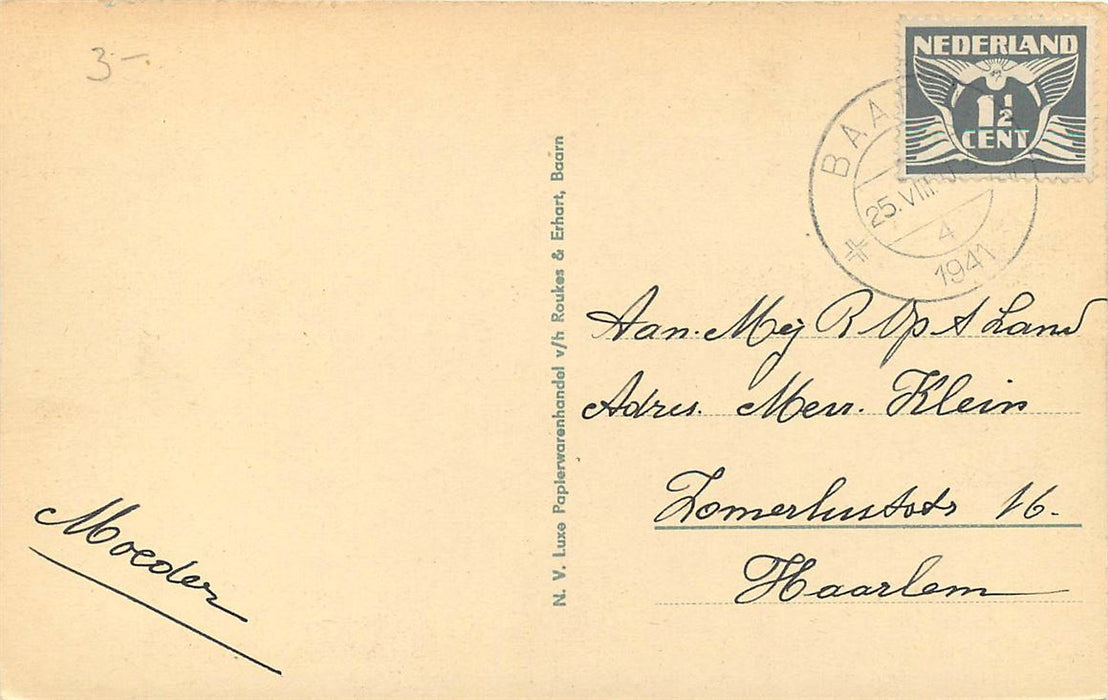 3-
NEDERLAND
1½
CENT
BAA
25.VIII
4
1941
N. V. Luxe Papierwarenhandel v/h Roukes & Erhart, Baarn
Aan. Mej R Op 't Land
Adres. Mevr. Klein
Zomerluststr 16.
Haarlem
Moeder